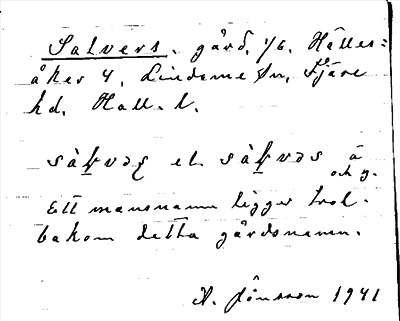 Salvers. gård, 1/6, Hälles=
åker 4, Lindome sn, Fjäre
hd, Hall. l.
sàḷvəʂ el. sàḷvəs ä.
och y.
Ett mansnamn ligger trol.
bakom detta gårdsnamn.
A. Jönsson 1941